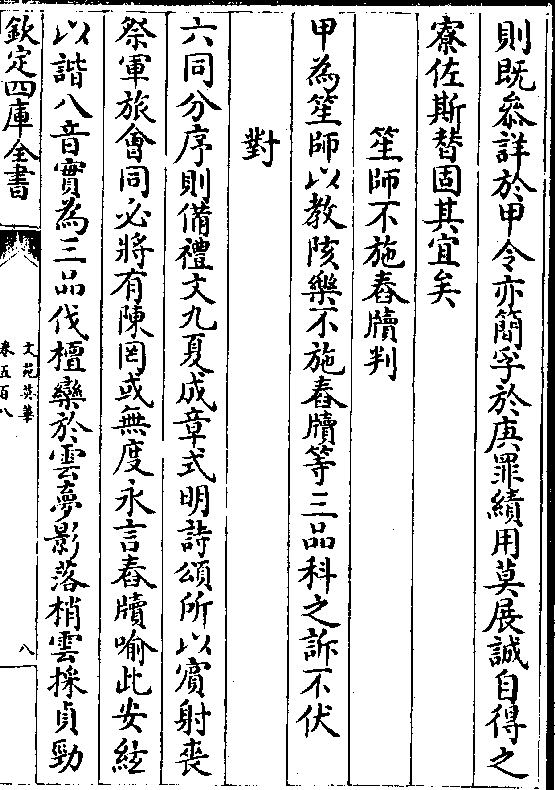 則既叅詳於甲令亦簡孚於庚罪績用莫展誠自得之
寮佐斯替固其宜矣
笙師不施舂牘判
甲為笙師以教陔樂不施舂牘等三品科之訴不伏
對
六同分序則備禮文九夏成章式明詩頌所以賓射喪
祭軍旅會同必將有陳罔或無度永言舂牘喻此安絃
以諧八音實為三品伐檀欒於雲夢影落梢雲採貞勁
欽定四庫全書
文苑英華
卷五百八
八